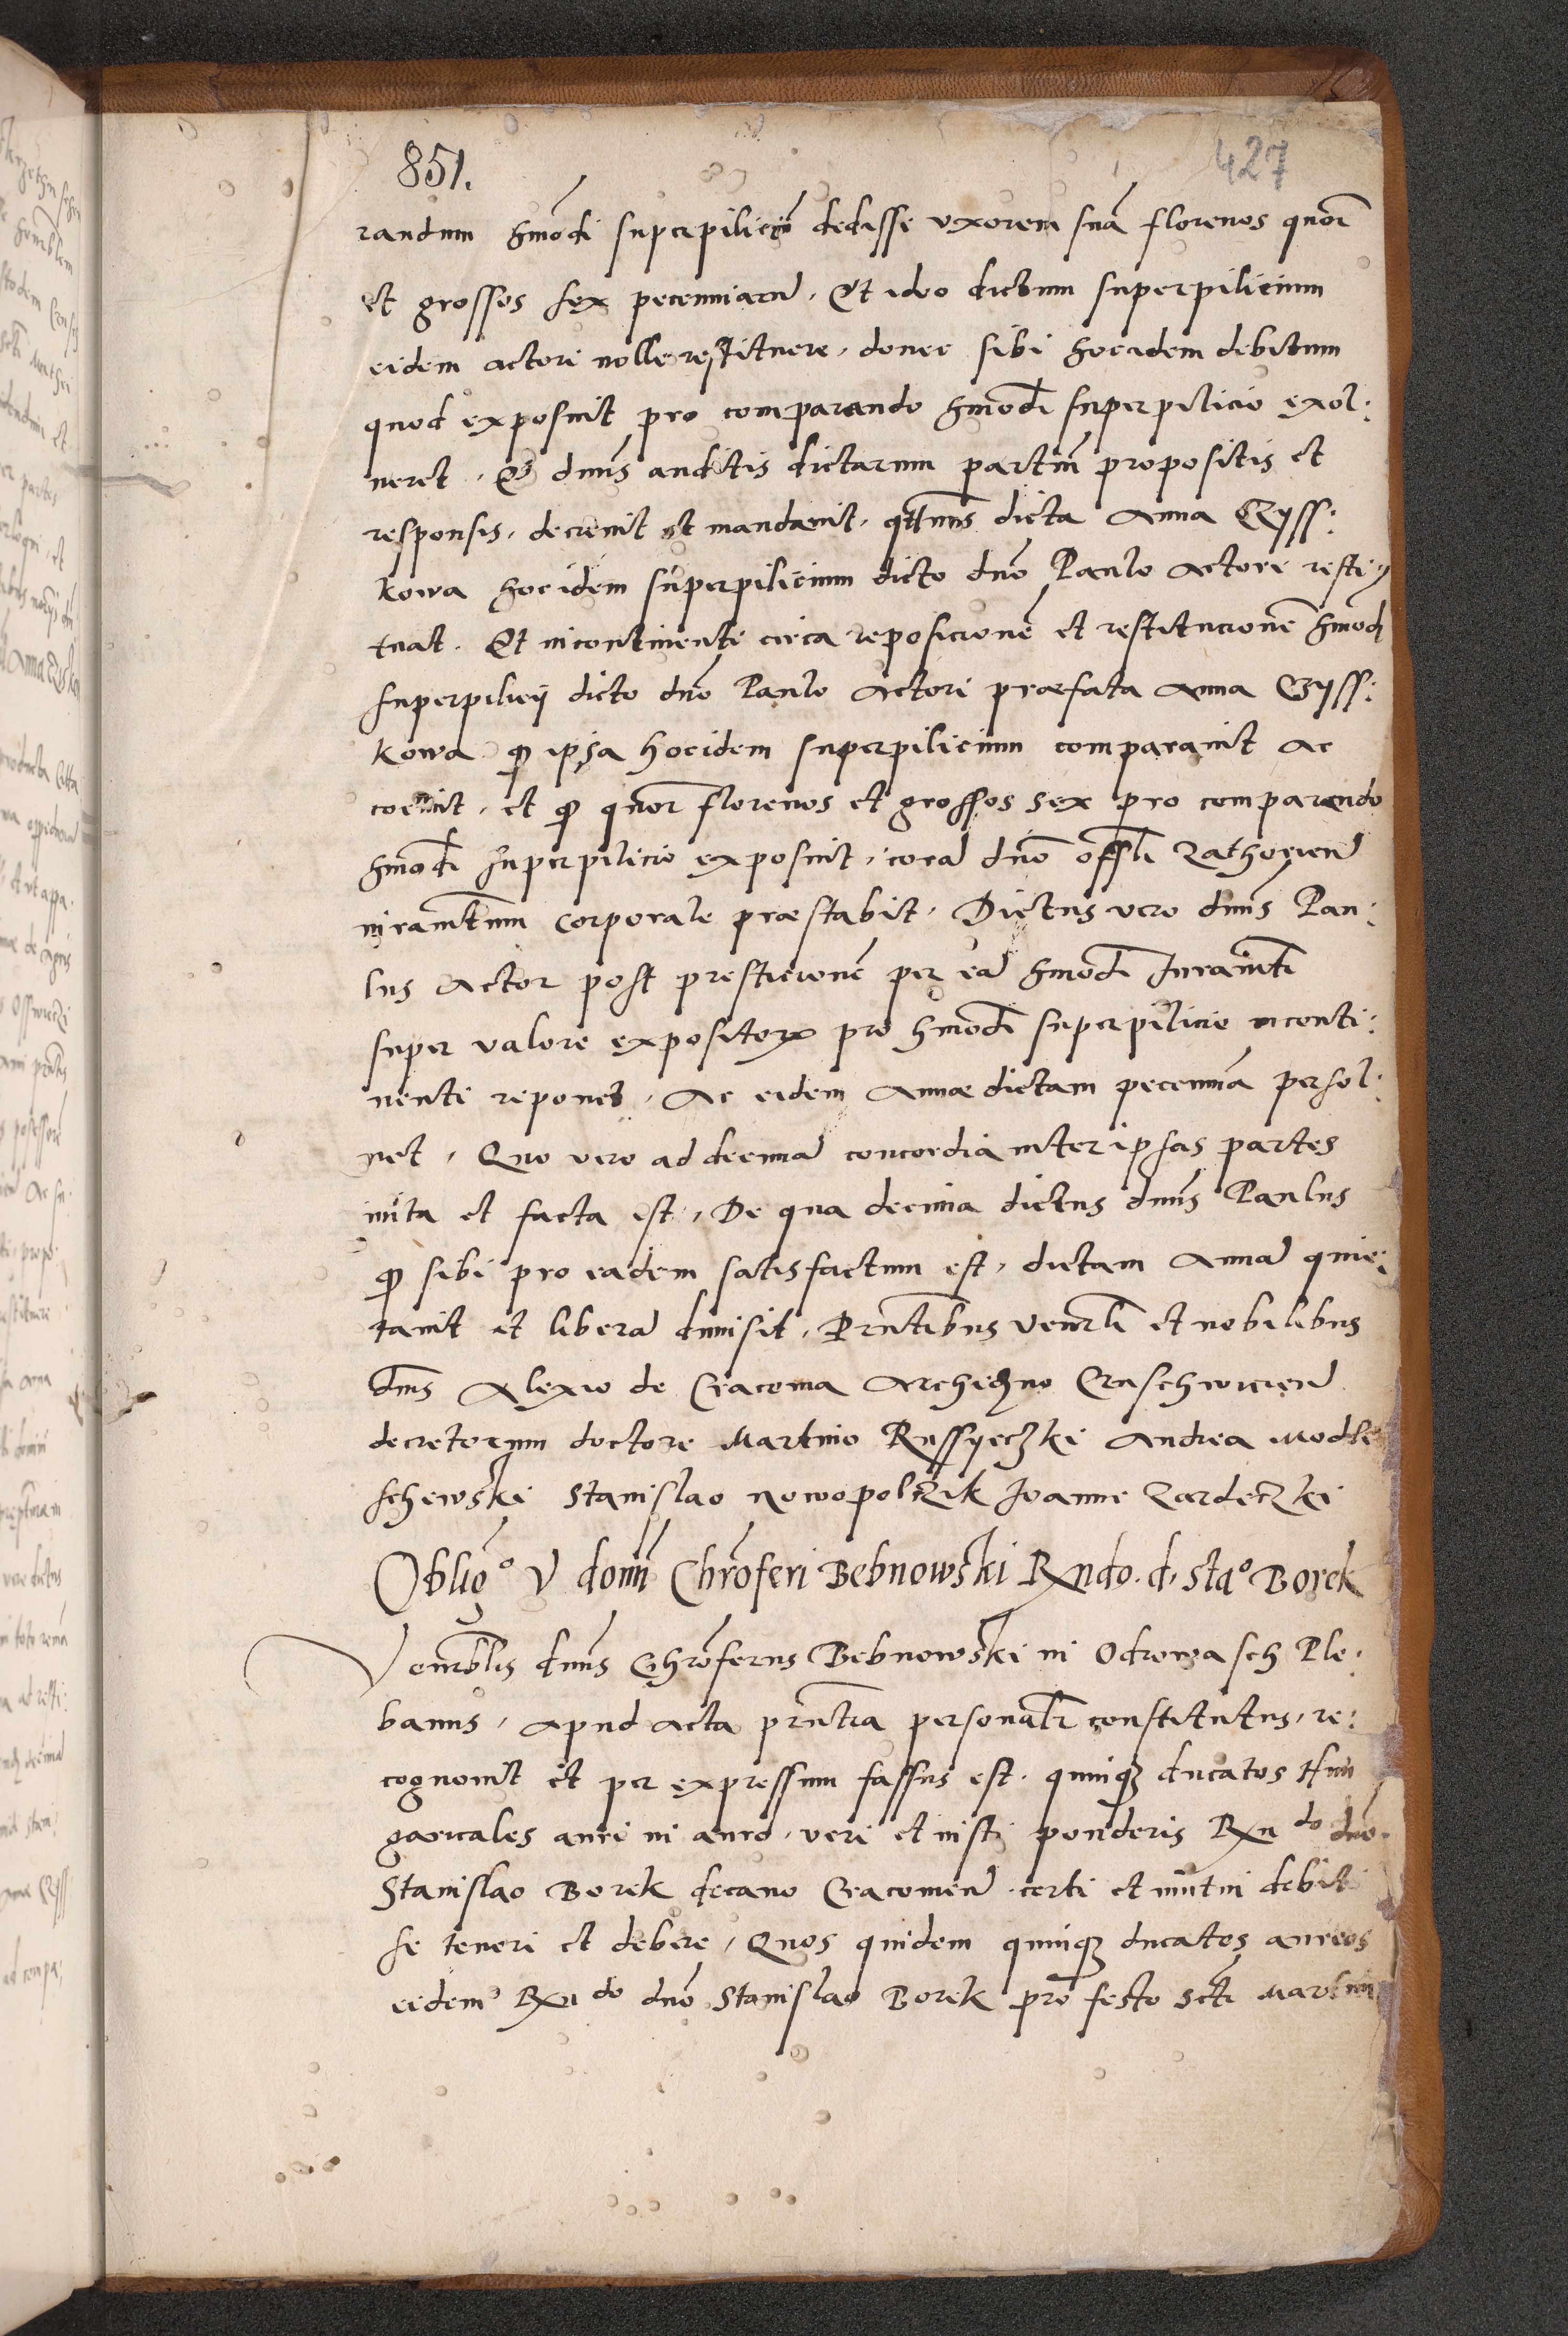 851.
427
randum hmōdi superpiliciū dedisse vxorem suā florenos quor̄
et grossos sex pecuniarū, Et ideo dictum superpilicium
eidem actori nolle restituere, donec sibi hocidem debitum
quod exposuit pro comparando hmōdi superpilicio exol:
ueret, Et dnūs auditis dictarum partiū propositis et
responsis, decreuit et mandauit, q̄tenus dicta Anna Czyss:
kowa hocidem superpilicium dicto dnō Paulo Actore resti:
tuat. Et incontinenti circa reposicionē et restitucionē hmōdi
superpilicij dicto dnō Paulo Actori præfata Anna Czyss:
kowa qp ipsa hocidem superpilicium comparauit ac
coemit, et qp quor̄ florenos et grossos sex pro comparando
hmōdi superpilicio exposuit, corā dnō offli Zathorien̄
iuramētum corporale præstabit, Dictus vero dnūs Pau:
lus Actor post prestacionē per eā hmōdi Iuramēti
super valore expositorꝝ pro hmōdi superpilicio inconti:
nenti reponet, Ac eidem Annæ dictam pecuniā persol:
uet, Quo vero ad decimā concordia inter ipsas partes
inita et facta est, De qua decima dictus dnūs Paulus
qp sibi pro eadem satisfactum est, dictam Annā quie:
tauit et liberā dimisit, Prn̄tibus Venerli et nobilibus
dnis Alexio de Cracouia Archidno Cruschwicien̄
decretorum doctore Martino Russyeczki Andrea Modli
schewski Stanislao Nowopolczik Joanne Zardeczki
Oblig° V domi Chrōferi Bebnowski Rxndo. d. Sta° Borek
Venerblis dnūs Chrōferus Bebnowski in Odrowasch Ple:
banus, Apud Acta prn̄tia personalr̄ constitutus, re:
cognouit et per expressum fassus est. quinqꝫ ducatos Hun
garicales auri in auro, veri et iusti ponderis Rxn do dnō
Stanislao Borek decano Cracouien̄ certi et mutui debiti
se teneri et debere, Quos quidem quinqꝫ ducatos aureos
eidem Rxn do dnō Stanislao Borek pro festo Scti Martini